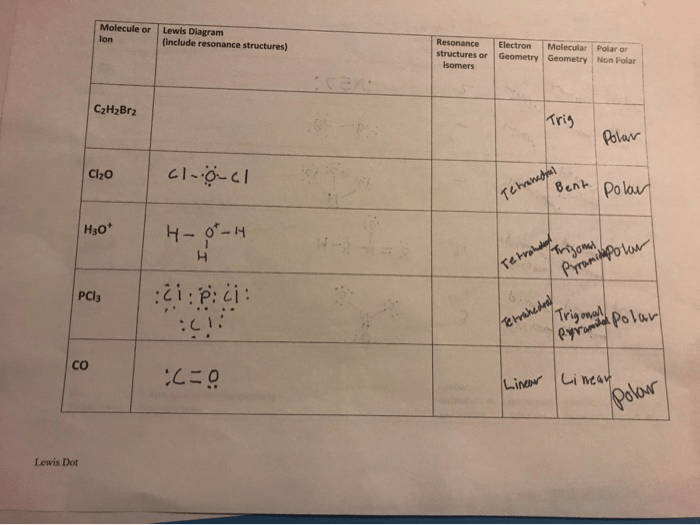 Molecule or Ion
Lewis Diagram
(include resonance structures)
Resonance structures or Isomers
Electron Geometry
Molecular Geometry
Polar or Non Polar
C₂H₂Br₂
Trig
Polar
Cl₂O
Cl-O-Cl
Tetrahedral
Bent
Polar
H₃O⁺
H-O⁺-H
H
Tetrahedral
Trigonal Pyramidal
Polar
PCl₃
:Cl:P:Cl:
:Cl:
Tetrahedral
Trigonal pyramidal
Polar
CO
:C=O
Linear
Linear
Polar
Lewis Dot